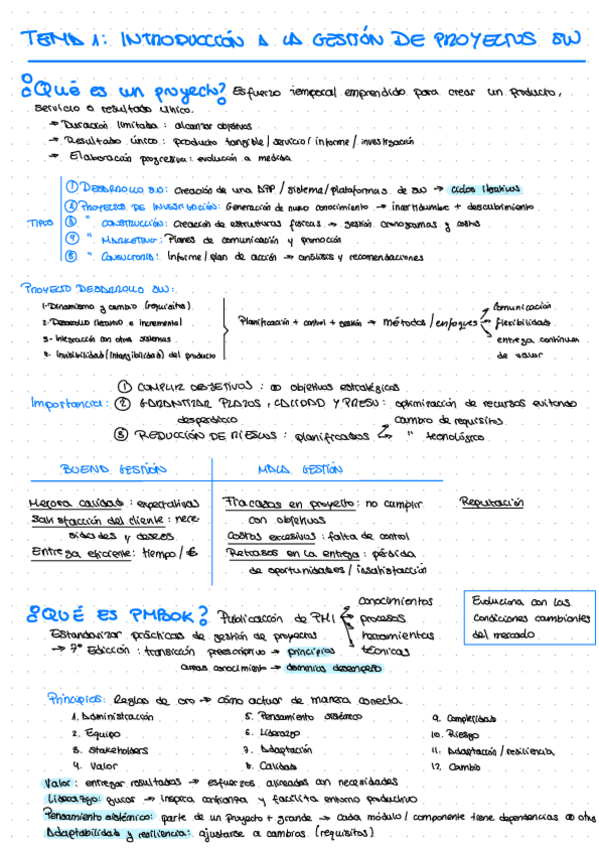 TEMA 1: INTRODUCCIÓN A LA GESTIÓN DE PROYECTOS SW
¿Qué es un proyecto? Esfuerzo temporal emprendido para crear un producto,
servicio o resultado único.
→ Duración limitada: alcanzar objetivos
→ Resultado único: producto tangible / servicio / informe / investigación
→ Elaboración progresiva: evolución a medida
TIPOS
① DESARROLLO SW: Creación de una APP / sistema / plataformas de SW → ciclos iterativos
② PROYECTOS DE INVESTIGACIÓN: Generación de nuevo conocimiento → incertidumbre + descubrimiento
③ " CONSTRUCCIÓN: Creación de estructuras físicas → gestión cronogramas y costos
④ " MARKETING: Planes de comunicación y promoción
⑤ " CONSULTORÍA: Informe / plan de acción → análisis y recomendaciones
PROYECTO DESARROLLO SW:
1- Dinamismo y cambio (requisitos)
2- Desarrollo iterativo e incremental
3- Integración con otros sistemas
4- Invisibilidad (intangibilidad) del producto
Planificación + control + gestión → métodos / enfoques
comunicación
flexibilidad
entrega continua
de valor
Importancia:
① CUMPLIR OBJETIVOS: obj objetivos estratégicos
② GARANTIZAR PLAZOS, CALIDAD Y PRESU: optimización de recursos evitando
desperdicio
③ REDUCCIÓN DE RIESGOS: planificados
cambio de requisitos
" tecnológico
BUENA GESTIÓN
Mejora calidad: expectativas
Satisfacción del cliente: nece-
sidades y deseos
Entrega eficiente: tiempo / €
MALA GESTIÓN
Fracasos en proyecto: no cumplir
con objetivos
Costos excesivos: falta de control
Retrasos en la entrega: pérdida
de oportunidades / insatisfacción
Reputación
¿QUÉ ES PMBOK? Publicación de PMI
conocimientos
procesos
herramientas
técnicas
Estandarizar prácticas de gestión de proyectos
→ 7ª Edición: transición prescriptivo → principios
áreas conocimiento → dominios desempeño
Evoluciona con las
condiciones cambiantes
del mercado
Principios: Reglas de oro → cómo actuar de manera correcta
1. Administración
2. Equipo
3. Stakeholders
4. Valor
5. Pensamiento sistémico
6. Liderazgo
7. Adaptación
8. Calidad
9. Complejidad
10. Riesgo
11. Adaptación / resiliencia
12. Cambio
Valor: entregar resultados → esfuerzos alineados con necesidades
Liderazgo: guiar → inspira confianza y facilita entorno productivo
Pensamiento sistémico: parte de un proyecto + grande → cada módulo / componente tiene dependencias de otros
Adaptabilidad y resiliencia: ajustarse a cambios (requisitos)